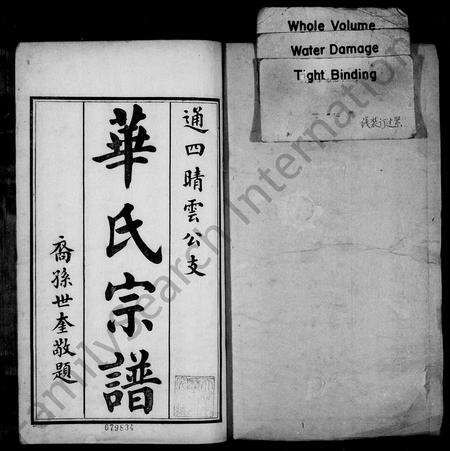 Whole Volume
Water Damage
Tight Binding
通四晴雲公支
華氏宗譜
裔孫世奎敬題
079834
FamilySearch International